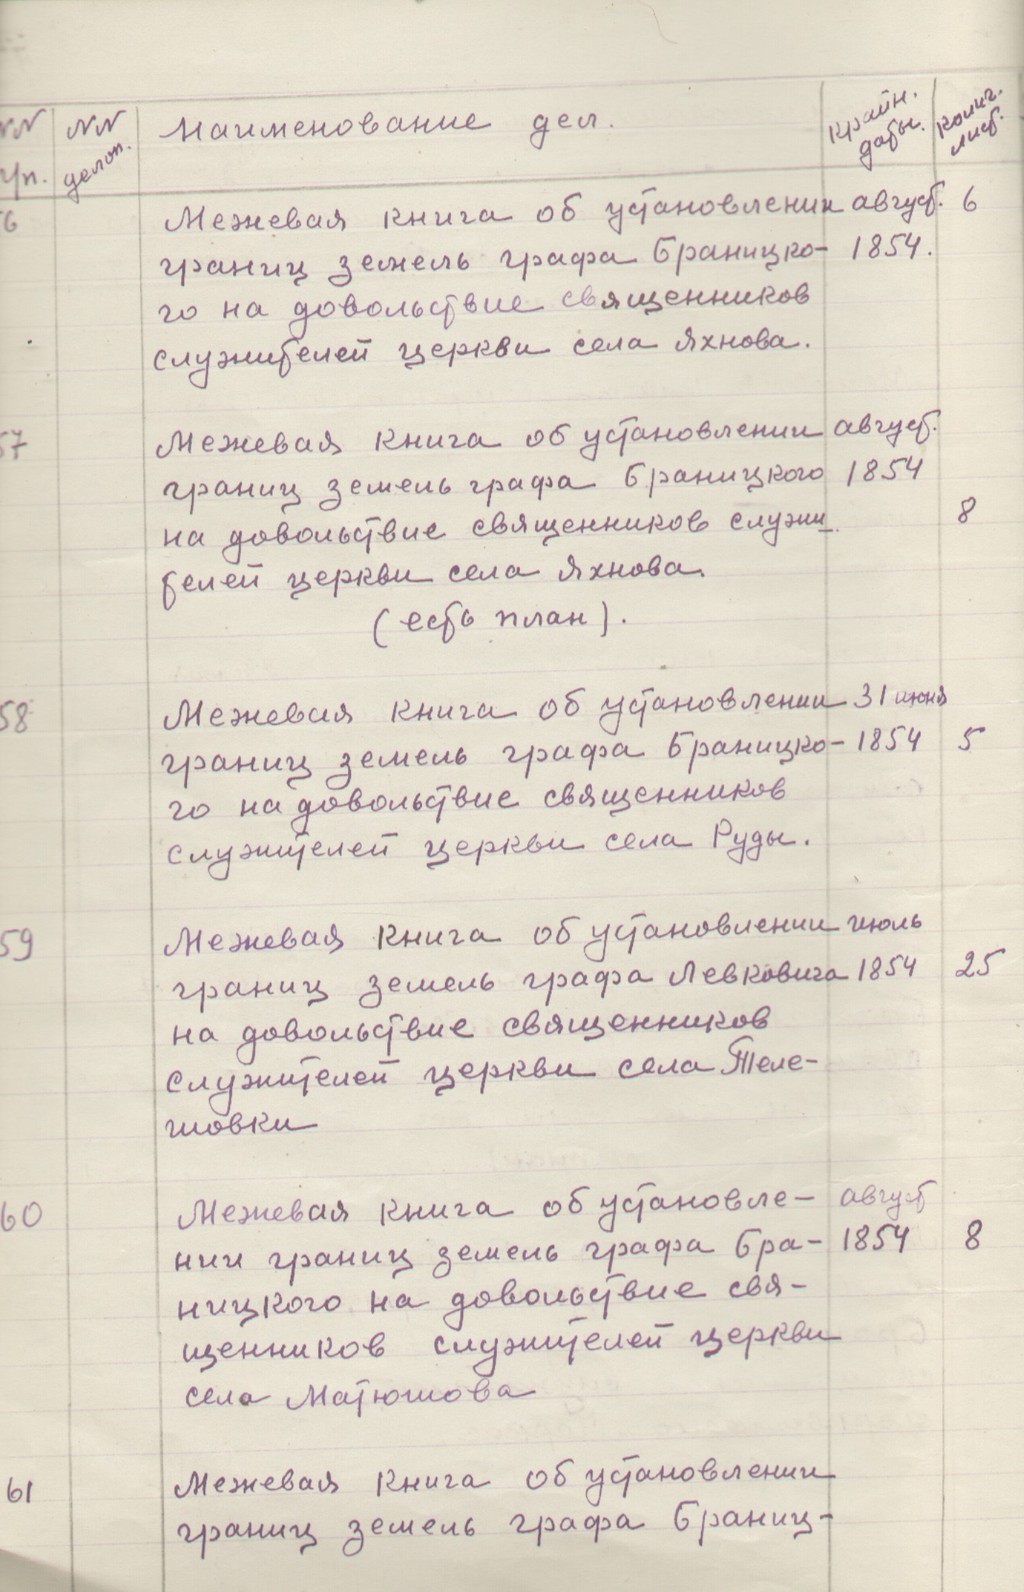 NN NN Наименование дел. крайн. колич.
п/п. делоп. даты. лист.
6 Межевая книга об установлении август. 6
границ земель графа Браницко- 1854.
го на довольствие священников
служителей церкви села Яхнова.
57 Межевая книга об установлении август.
границ земель графа Браницкого 1854
на довольствие священников служи 8
телей церкви села Яхнова.
(есть план).
58 Межевая книга об установлении 31 июня
границ земель графа Браницко- 1854 5
го на довольствие священников
служителей церкви села Руды.
59 Межевая книга об установлении июль
границ земель графа Левковича 1854 25
на довольствие священников
служителей церкви села Теле-
шовки
60 Межевая книга об установле- август
нии границ земель графа Бра- 1854 8
ницкого на довольствие свя-
щенников служителей церкви
села Матюшова
61 Межевая книга об установлении
границ земель графа Браниц-